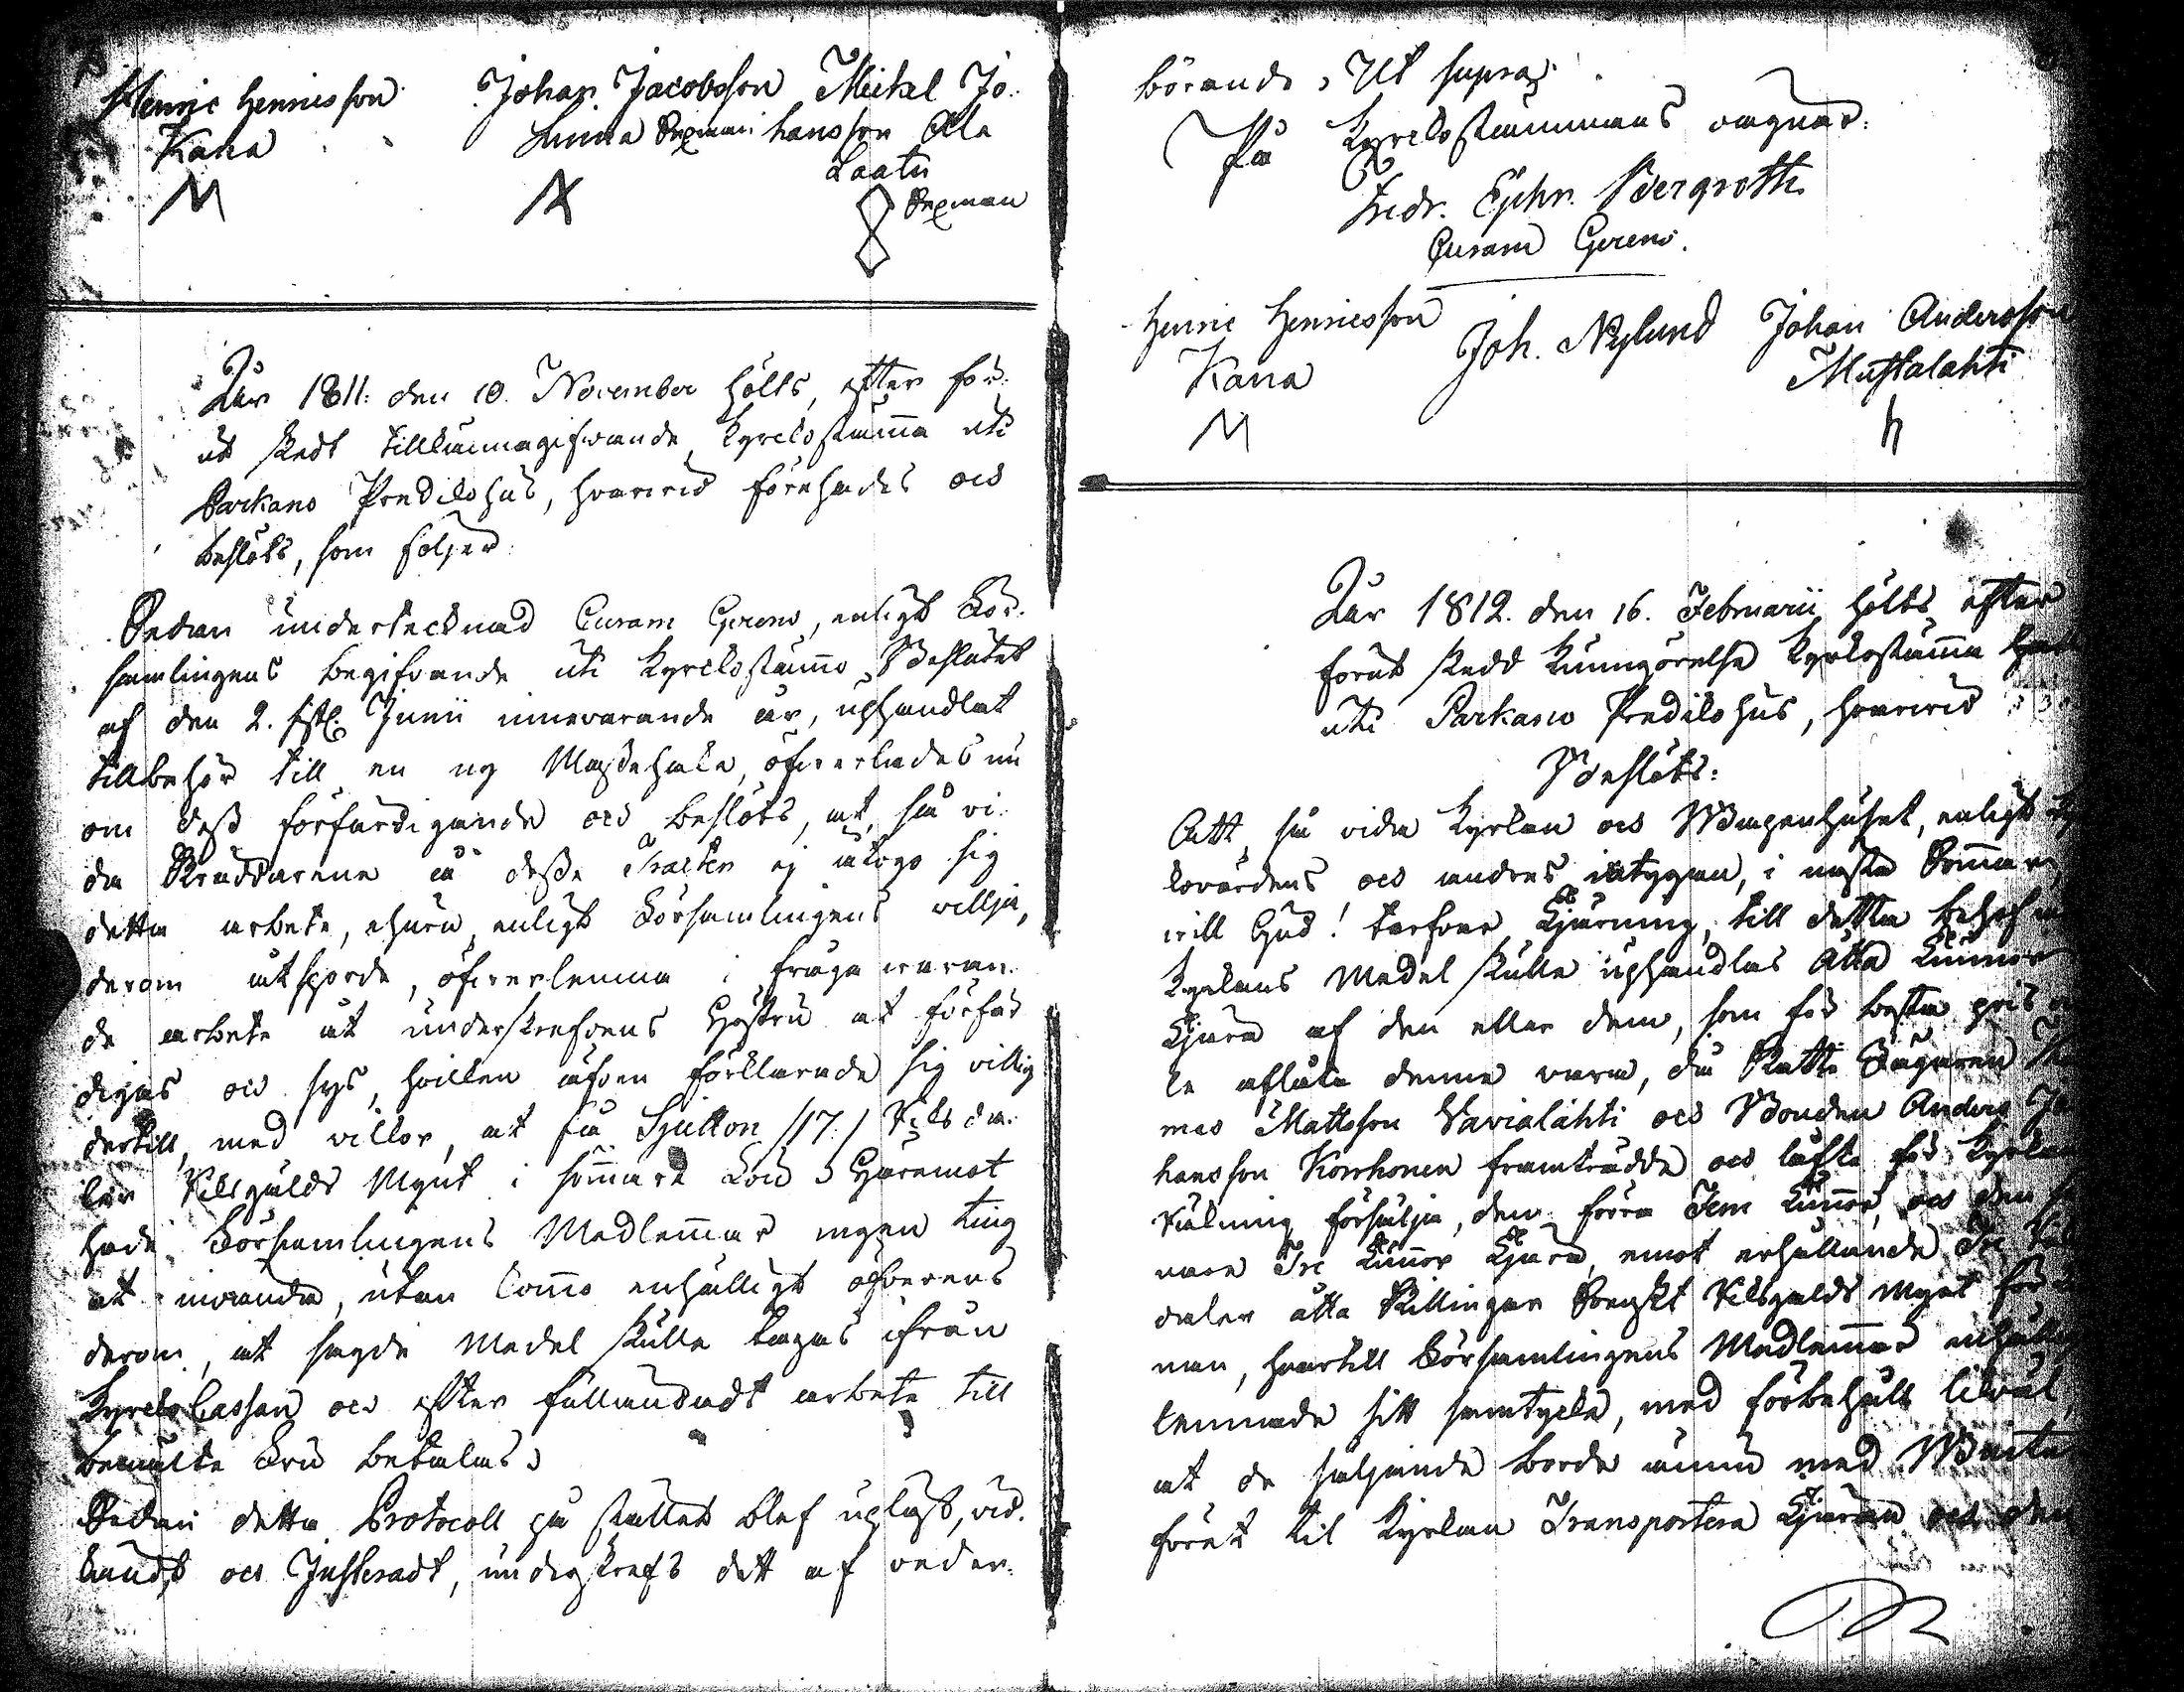 Henric Henricsson Johan Jacobsson Michel Jo-
Kana Linna Sexman hansson Ala
Laatu
Sexman
År 1811. den 10. November hölts, efter för-
ut skedt tillkännagifvande Kyrckostämma uti
Parkano Predikohus, hvarvid förehades och
beslöts, som följer:
Sedan undertecknad Curam Gerens, enligt För-
samlingens begifvande uti Kyrckostämmo Beslutet
af den 2. sistl. Junii innevarande år, uphandlat
tillbehör till en ny Massehake, öfverlades nu
om dess förfärdigande och beslöts, at, så vi-
da Skräddarene å desse Trakter ej åtogo sig
detta arbete, ehuru, enligt Församlingens villja,
derom åtsporde, öfverlemna i fråga varan-
de arbete åt underskrefvens Hustru at förfär
digas och sys, hvilken äfven förklarade sig villig
dertill, med villkor, at få Sjutton /:17:/ Riks da-
ler Riksgälds Mynt i sömmare Lön. Häremot
hade Församlingens Medlemmar ingen ting
at invända, utan Commo enhälligt öfverens
derom, at sagde Medel skulle tagas ifrån
Kyrcko Cassan och efter fulländadt arbete till
bemälte Fru betalas.
Sedan detta Protocoll på stället blef upläst, ved-
kändt och Justeradt, underskrefs dett af veder-
börande, Ut supra.
På Kyrckostämmans vägnar:
Fredr. Ephr. Bergroth
Curam Gerens.
Henric Henricsson Joh. Nylund Johan Andersson
Kana Mustalahti
År 1812. den 16. Februarii hölts efter
förut skedd kungörelse Kyrkostämma
uti Parkano Predikohus, hvarvid
Beslöts:
Att, så vida Kyrkan och Wapenhuset, enligt
kovärdens och andras intygan, i nästa Sommar,
vill Gud! tarfvar Tjärning, till detta behof
Kyrkans Medel skulle uphandlas Åtta Tunnor
Tjära af den eller dem, som för bästa pris
le aflåta denna vara, då Skatte Ägaren
mas Mattsson Vavialahti och Bonden Anders Jo
hansson Korrhonen framträdde och låfte för Kyrkans
räkning försälja, den förra Fem Tunnor, och den
nare Tre Tunnor Tjära, emot erhållande Tre
daler åtta Skillingar Svenskt Riksgälds Mynt för
nan, hvartill Församlingens Medlemmar enhällig
lemnade sitt samtycke, med förbehåll likväl,
at de säljande borde ännu med Winter
föret til Kyrkan Transportera Tjäran och den